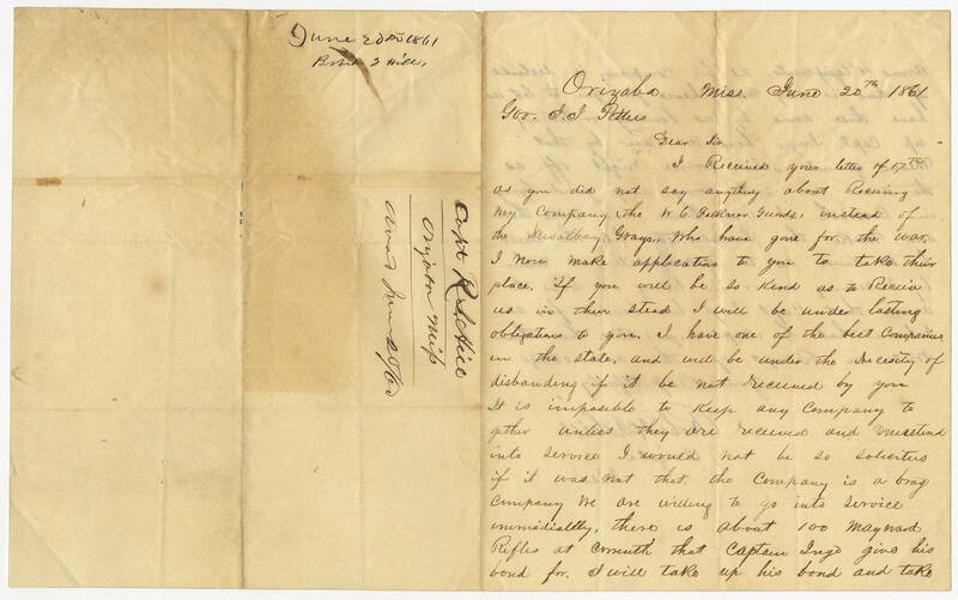 June 20th 1861
Robt S Hill,
Capt R S Hill
Orizaba Miss
Orizaba Miss. June 20th 1861
Gov. J. J Pettus
Dear Sir
I Received your letter of 17th
as you did not say anything about Receiving
My Company, the W. C. Falkner Guards, instead of
the Grays, Who have gone for the war.
I Now make application to you to take their
place. If you will be so Kind as to Receive
us in their stead I will be under lasting
obligations to you. I have one of the best Companies
in the state, and will be under the Necesity of
disbanding if it be not received by you
It is imposible to Keep any Company to
gether unless they are received and
into Service I would not be so
if it was not that the Company is a brag
Company We are willing to go into Service
immediatly, there is about 100 Maynard
Rifles at Corinth that Captain Inge give his
bond for. I will take up his bond and take